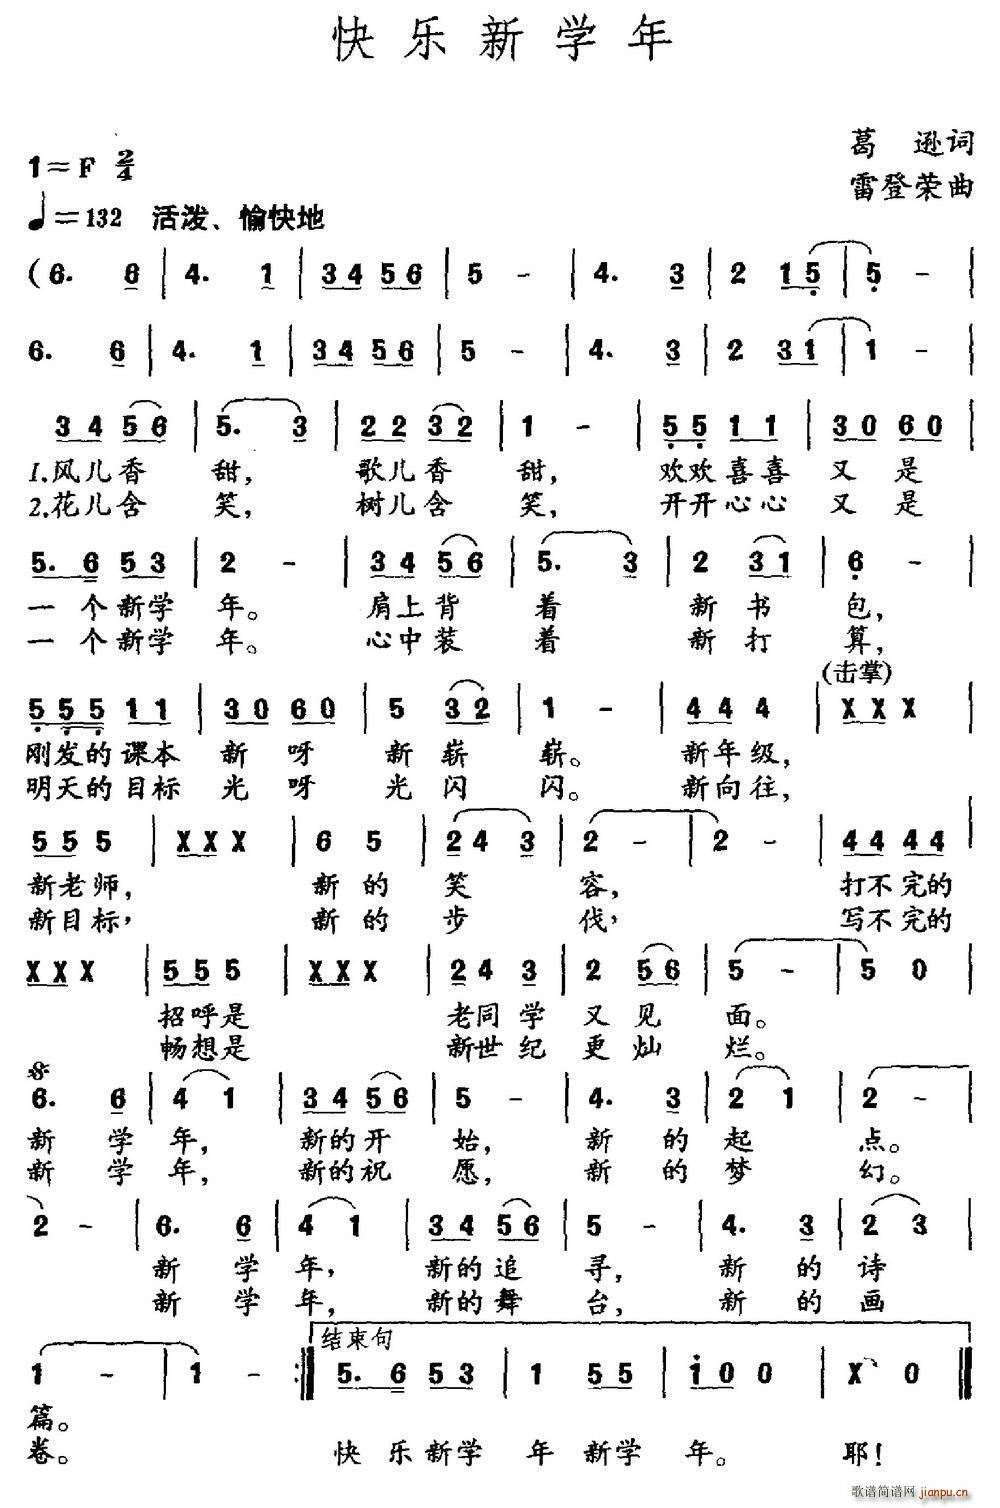 快乐新学年
葛逊词
1=F 2/4
雷登荣曲
♩=132 活泼、愉快地
(6. 6 | 4. 1 | 3 4 5 6 | 5 - | 4. 3 | 2 1 5 | 5 - |
6. 6 | 4. 1 | 3 4 5 6 | 5 - | 4. 3 | 2 3 1 | 1 - |
3 4 5 6 | 5. 3 | 2 2 3 2 | 1 - | 5 5 1 1 | 3 0 6 0 |
1.风儿香甜,歌儿香甜,欢欢喜喜又是
2.花儿含笑,树儿含笑,开开心心又是
5. 6 5 3 | 2 - | 3 4 5 6 | 5. 3 | 2 3 1 | 6 - |
一个新学年。肩上背着新书包,
一个新学年。心中装着新打算,
(击掌)
5 5 5 1 1 | 3 0 6 0 | 5 3 2 | 1 - | 4 4 4 | X X X |
刚发的课本新呀新崭崭。新年级,
明天的目标光呀光闪闪。新向往,
5 5 5 | X X X | 6 5 | 2 4 3 | 2 - | 2 - | 4 4 4 4 |
新老师,新的笑容,打不完的
新目标,新的步伐,写不完的
X X X | 5 5 5 | X X X | 2 4 3 | 2 5 6 | 5 - | 5 0 |
招呼是老同学又见面。
畅想是新世纪更灿烂。
6. 6 | 4 1 | 3 4 5 6 | 5 - | 4. 3 | 2 1 | 2 - |
新学年,新的开始,新的起点。
新学年,新的祝愿,新的梦幻。
2 - | 6. 6 | 4 1 | 3 4 5 6 | 5 - | 4. 3 | 2 3 |
新学年,新的追寻,新的诗
新学年,新的舞台,新的画
结束句
1 - | 1 - :| 5. 6 5 3 | 1 5 5 | 1 0 0 | X 0 ‖
篇。
卷。快乐新学年新学年。耶!
歌谱简谱网
jianpu.cn